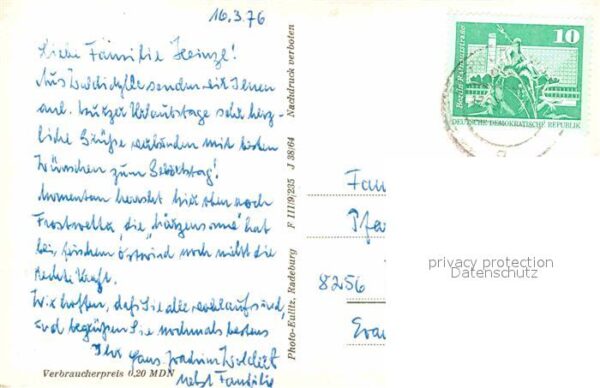 16.3.76
Liebe Familie Heinze!
Aus Waldidylle senden wir Ihnen
anl. kurzer Urlaubstage sehr herz-
liche Grüße verbunden mit besten
Wünschen zum Geburtstag!
Momentan herrscht hier oben noch
Frostwetter, die "Märzensonne" hat
bei frischem Ostwind noch nicht die
rechte Kraft.
Wir hoffen, daß Sie alle wohlauf sind
und begrüßen Sie nochmals bestens
Ihr Hans-Joachim
nebst Familie
Verbraucherpreis 0,20 MDN
Photo-Kulitz, Radeburg F 111/9/235 J 38/64 Nachdruck verboten
10
Berlin Rathausstraße
DEUTSCHE DEMOKRATISCHE REPUBLIK
Fam
Pfa
8256
privacy protection
Datenschutz